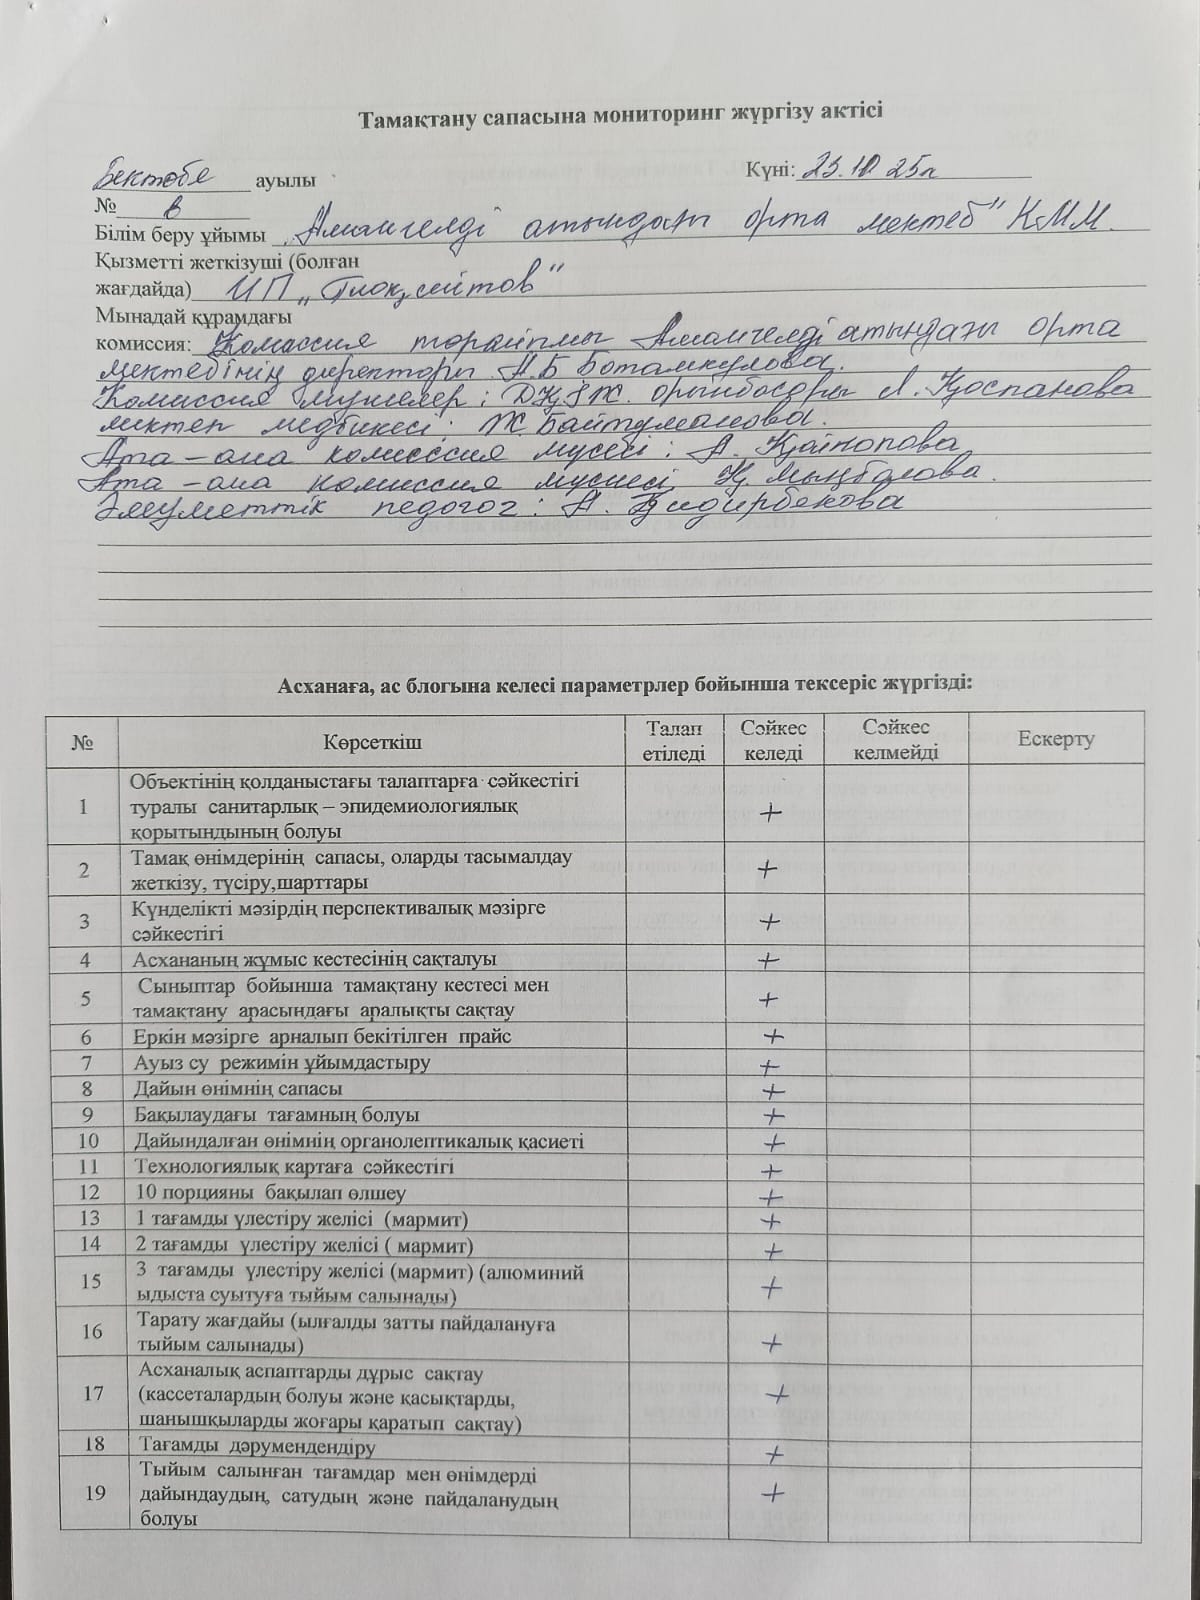 Тамақтану сапасына мониторинг жүргізу актісі
Бектөбе ауылы Күні: 23.10 25ж
№ 6
Білім беру ұйымы „Амангелді атындағы орта мектеб" КММ.
Қызметті жеткізуші (болған
жағдайда) ИП „ "
Мынадай құрамдағы
комиссия: Комассия торайымы Амангелді атындағы орта
мектебінің директоры Н.Б Ботамкулова.
Комиссия мүшелер: орынбасары Л. Қоспанова
мектеп медбикесі: Ж. Байтуманова.
Ата – ана комиссия мүсесі: А. Қайпопова
Ата – ана комиссия Қ. Мыңбалова.
Әлеуметтік педогог: А.
Асханаға, ас блогына келесі параметрлер бойынша тексеріс жүргізді:
№ Көрсеткіш Талап етіледі Сәйкес келеді Сәйкес келмейді Ескерту
1 Объектінің қолданыстағы талаптарға сәйкестігі
туралы санитарлық – эпидемиологиялық +
қорытындының болуы
2 Тамақ өнімдерінің сапасы, оларды тасымалдау +
жеткізу, түсіру,шарттары
3 Күнделікті мәзірдің перспективалық мәзірге +
сәйкестігі
4 Асхананың жұмыс кестесінің сақталуы +
5 Сыныптар бойынша тамақтану кестесі мен +
тамақтану арасындағы аралықты сақтау
6 Еркін мәзірге арналып бекітілген прайс +
7 Ауыз су режимін ұйымдастыру +
8 Дайын өнімнің сапасы +
9 Бақылаудағы тағамның болуы +
10 Дайындалған өнімнің органолептикалық қасиеті +
11 Технологиялық картаға сәйкестігі +
12 10 порцияны бақылап өлшеу +
13 1 тағамды үлестіру желісі (мармит) +
14 2 тағамды үлестіру желісі ( мармит) +
15 3 тағамды үлестіру желісі (мармит) (алюминий +
ыдыста суытуға тыйым салынады)
16 Тарату жағдайы (ылғалды затты пайдалануға +
тыйым салынады)
17 Асханалық аспаптарды дұрыс сақтау
(кассеталардың болуы және қасықтарды, +
шанышқыларды жоғары қаратып сақтау)
18 Тағамды дәрумендендіру +
19 Тыйым салынған тағамдар мен өнімдерді
дайындаудың, сатудың және пайдаланудың +
болуы